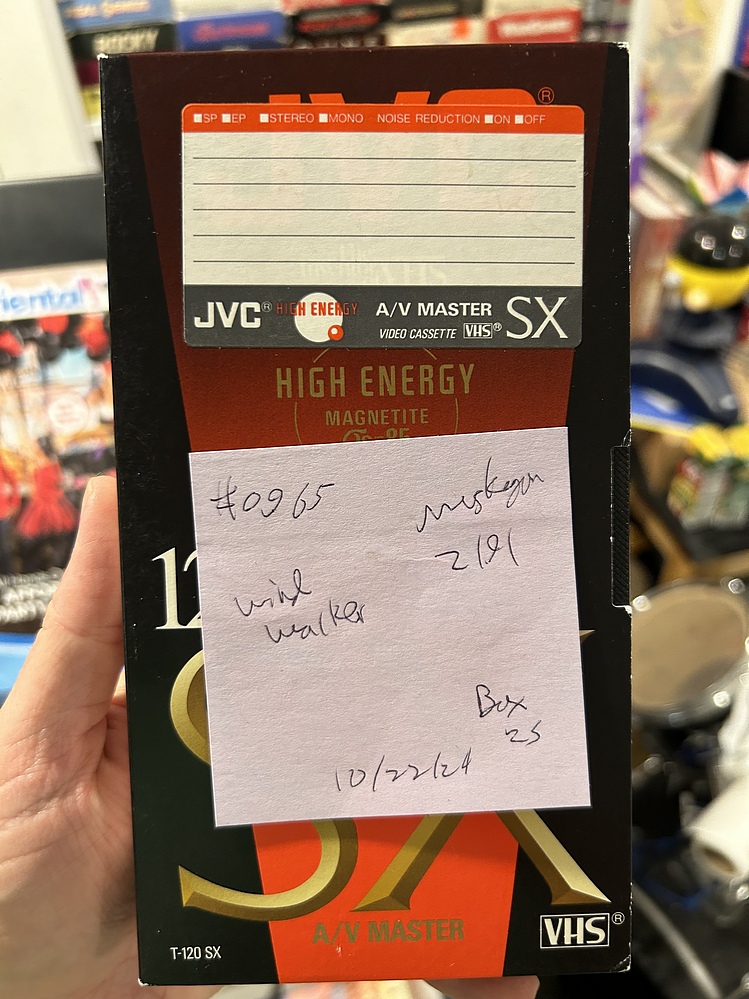 ROCKY
®
SP EP STEREO MONO NOISE REDUCTION ON OFF
JVC® HIGH ENERGY A/V MASTER SX
VIDEO CASSETTE VHS®
HIGH ENERGY
MAGNETITE
#0965
Muskegon
2/91
wind
walker
Box
25
10/22/24
12
SX
A/V MASTER
T-120 SX
VHS®